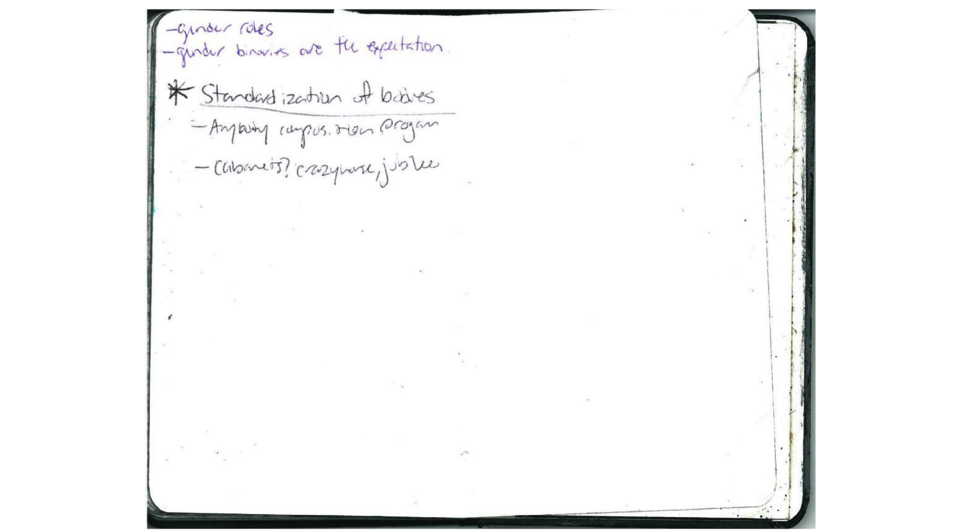 -gender roles
-gender binaries are the expectation.
* Standardization of bodies
- Anybody composition program
- Cabarets? crazyhorse, jubilee